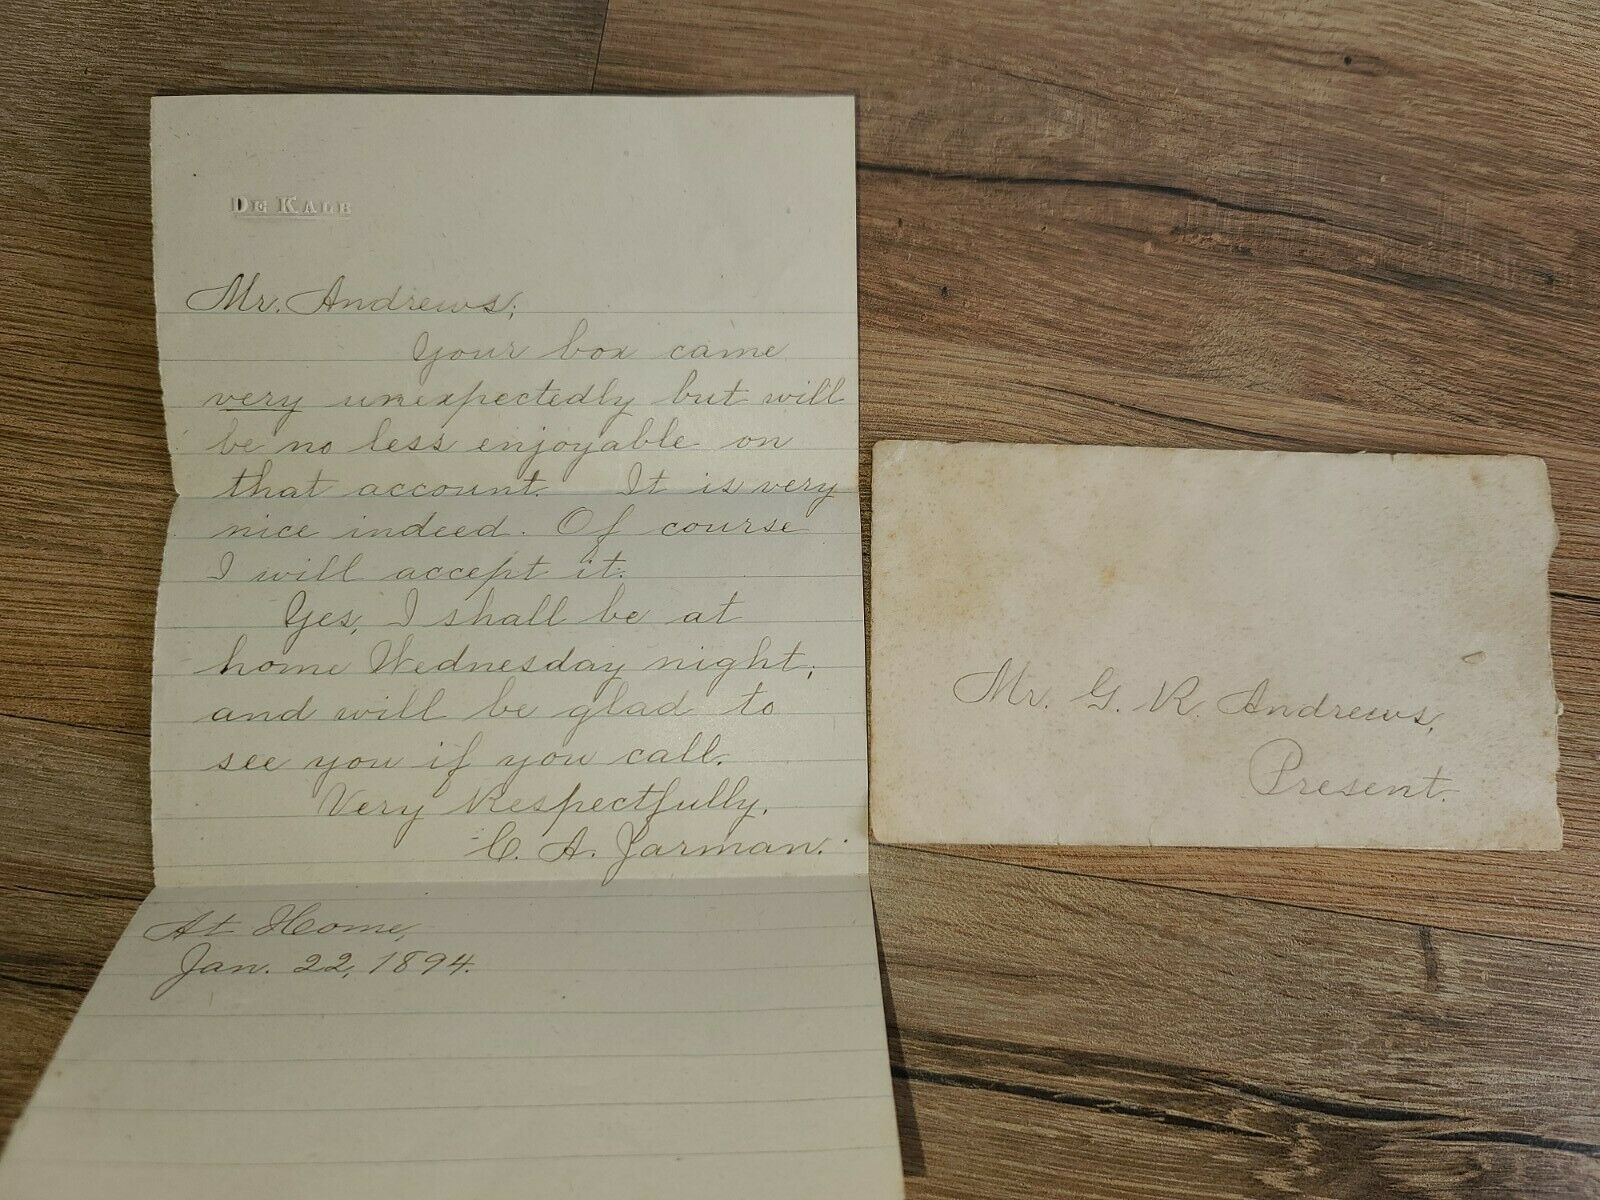 DE KALB
Mr. Andrews;
Your box came
very unexpectedly but will
be no less enjoyable on
that account. It is very
nice indeed. Of course
I will accept it.
Yes, I shall be at
home Wednesday night,
and will be glad to
see you if you call.
Very Respectfully,
C. A. Jarman.
At Home,
Jan. 22, 1894.
Mr. G. R. Andrews,
Present.